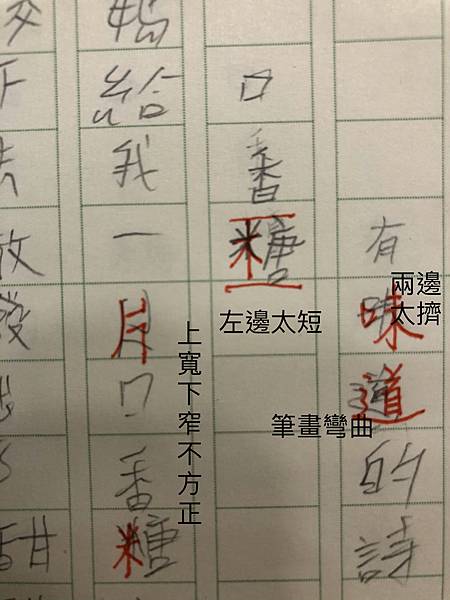 有味道的詩
兩邊
太擠
筆畫彎曲
口香糖
左邊太短
上寬下窄不方正
媽給我一片口香糖